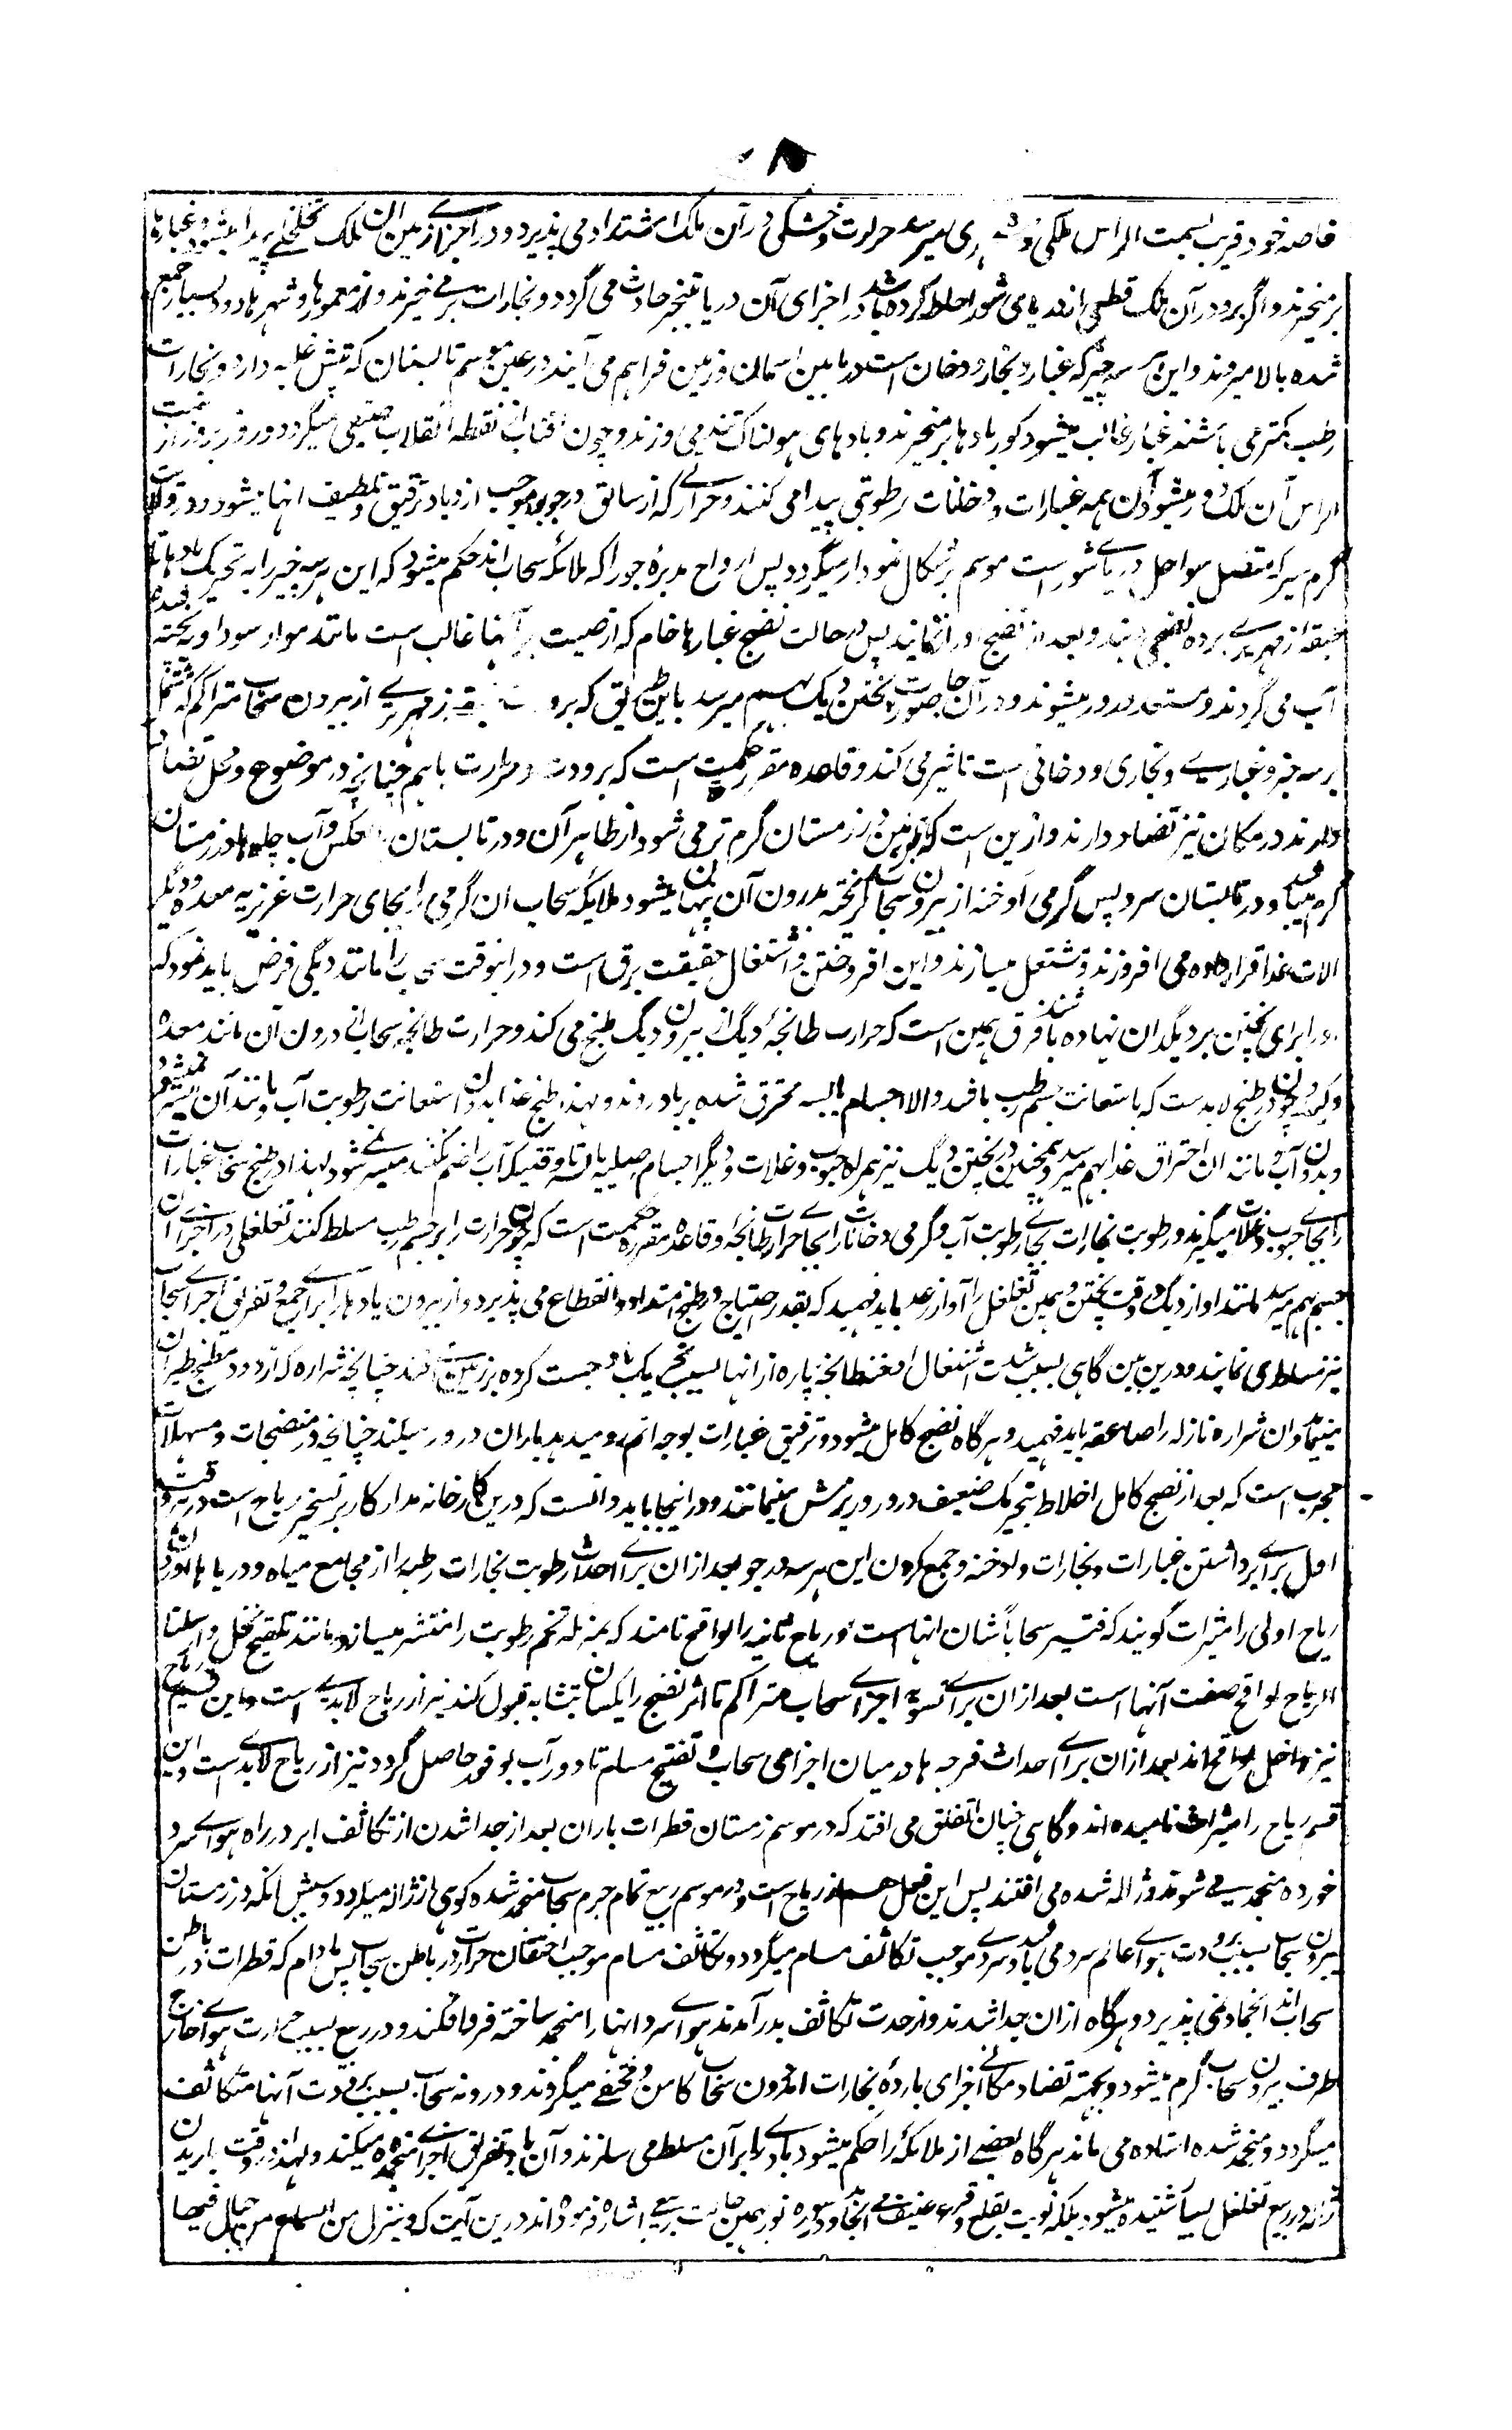 ۸
خاصه خود قریب بسمت الراس ملکی و شهری میرسد حرارت و خشکی در آن ملک اشتداد می پذیرد و در اجزاے زمین آن ملک تخلخلے پیدا میشود و غبارها
برمیخیزند و اگر بر و در آن ملک قطعی از دریای شور احاطه کرده باشد در اجزای آن دریا تبخیر حادث می گردد و بخارات برمی خیزند و از معمورها و شهرها دود بسیار جمع
شده بالا میروند و این هر سه چیز که غبار و بخار و دخان است در ما بین آسمان و زمین فراهم می آیند و در عین موسم تابستان که تپش غلبه دارد و بخارات
رطب کمتر می باشند غبار غالب میشود کوربادها برمیخیزند و بادهای هولناک تند می وزند و چون آفتاب از نقطه انقلاب صیفی میگردد و روز بروز از سمت
الراس آن ملک دور میشود آن همه غبارات و دخانات رطوبتی پیدا می کنند و حرارتے که از سابق در جو بود موجب ازدیاد ترقیق و تلطیف آنها میشود و در ولایت
گرم سیر که متصل سواحل دریاے شور است موسم برشکال نمودار میگردد پس ارواح مدبرۀ جو را که ملائکه سحاب اند حکم میشود که این هر سه چیز را به تحریک بادها تا
طبقه زمهریرے برده نضج دهند و بعد از نضج اورا نمایند پس در حالت نضج غبارها خام که ارضیت بر آنها غالب است مانند مواد سوداویه پخته
آب می گردند و مستعد درور میشوند و در آن جا صورت پختن دیک بهم میرسد باین طریق که برودت طبقه زمهریرے از بیرون سحاب متراکم که مشتمل
بر سه جزو غبارے و بخاری و دخانی است تاثیر می کند و قاعده مقرر حکمت است که برودت و حرارت باهم چنانچه در موضوع و محل تضاد
دارند در مکان نیز تضاد دارند و ازین است که زمین در زمستان گرم تر می شود از ظاهر آن و در تابستان بالعکس و آب چاه ها در زمستان
گرم میباشد و در تابستان سرد پس گرمی ادخنه از بیرون سحاب گریخته بدرون آن پنهان میشود ملائکه سحاب آن گرمی را بجای حرارت غریزیه معده و دیگر
آلات غذا قرار داده می افروزند و مشتعل میسازند و این افروختن و اشتعال حقیقت برق است و در اینوقت سحاب را مانند دیگی فرض باید نمود که
او را برای پختن بر دیگدان نهاده باشند فرق همین است که حرارت طابخۀ دیگ از بیرون دیگ طبخ می کند و حرارت طابخه سحاب از درون آن مانند معده
و چون در طبخ لابد است که باستعانت جسم رطب باشد والا اجسام یابسه محترق شده برباد روند و لهذا طبخ غذا بدون استعانت رطوبت آب و مانند آن میسر نمیشود
و بدون آب و مانند آن احتراق غذا بهم میرسد و همچنین در پختن دیگ نیز همراه حبوب و غلات و دیگر اجسام صلبیه یابسه تا وقتیکه آب را ضم نکنند میسر نمی شود لهذا در طبخ سحاب غبارات
را بجاے حبوب و غلات میگیرند و رطوبت بخارات بجاے رطوبت آب و گرمی دخانات را بجاے حرارت طابخه و قاعده مقرره حکمت است که چون حرارت را بر جسم رطب مسلط کنند تغلغلی در اجزاے آن
جسم بهم میرسد مانند آواز دیگ در وقت پختن و همین تغلغل را آواز رعد باید فهمید که بقدر احتیاج در طبخ امتداد و انقطاع می پذیرد و از بیرون بادها را براے جمع و تفریق اجزاے سحاب
نیز مسلط می نمایند و درین بین گاهی بسبب شدت اشتعال ادخنه طابخه پاره از آنها بسبب تحریک باد جست کرده بر زمین می افتد چنانچه شراره که از دود مطبخ طیران
مینماید و آن شراره نازله را صاعقه باید فهمید و هرگاه نضج کامل میشود و ترقیق غبارات بوجه اتم رو میدهد باران درور میکند چنانچه در منضجات و مسهلات
مجرب است که بعد از نضج کامل اخلاط بتحریک ضعیف درور و ریزش مینمایند و در اینجا باید دانست که درین کارخانه مدار کار بر تسخیر ریاح است در هر وقت
اول براے برداشتن غبارات و بخارات و ادخنه و جمع کردن این هر سه در جو بعد ازان براے احداث رطوبت بخارات رطبه را از مجامع میاه و دریاها
ریاح اولی را مثیرات گویند که فتثیر سحاباً شان آنها است و ریاح ثانیه را لواقح نامند که بمنزله تخم رطوبت را منتشر میسازد مانند تلقیح نخل و ارسلنا
الریاح لواقح صفت آنها است بعد ازان براے تسویه اجزاے سحاب متراکم تا اثر نضج را یکسان متشابه قبول کنند نیز از ریاح لابدے است و این قسم ریاح
نیز داخل لواقح اند بعد ازان براے احداث فرجه ها در میان اجزای سحاب و تفتیح مسام تا درور آب بوقوع حاصل گردد نیز از ریاح لابدے است و این
قسم ریاح را مبشرات نامیده اند و گاهی چنان اتفاق می افتد که در موسم زمستان قطرات باران بعد از جدا شدن از تکاثف ابر در راه هواے سرد
خورده منجمد می شوند و ژاله شده می افتند پس این فعل هم از ریاح است و در موسم ربیع تمام جرم سحاب منجمد شده کوهی از ژاله میگردد و سببش آنکه در زمستان
بیرون سحاب بسبب برودت هواے عالم سرد می باشد و سردے موجب تکاثف مسام میگردد و تکاثف مسام موجب احتقان حرارت در باطن سحاب پس مادام که قطرات در باطن
سحاب اند انجماد نمی پذیرد و هرگاه ازان جدا شدند و از حدت تکاثف بدر آمدند هواے سرد آنها را منجمد ساخته فرو افگند و در ربیع بسبب حرارت هواے خارج
طرف بیرون سحاب گرم میشود و بجهته تضاد مکانے اجزای باردۀ بخارات اندرون سحاب کامن و مختفے میگردند و درونه سحاب بسبب برودت آنها متکاثف
میگردد و منجمد شده استاده می ماند هرگاه بعضے از ملائکه را حکم میشود بادے را بر آن مسلط می سازند و آن باد تفریق اجزاے منجمده میکند و لهذا در وقت باریدن
ژاله در ربیع تغلغل بسیار شنیده میشود بلکه نوبت بقلع و قرع عنیف می انجامد و در سوره نور بهمین حالت ربیعی اشاره فرموده اند درین آیت که و ینزل من السماء من جبال فیها